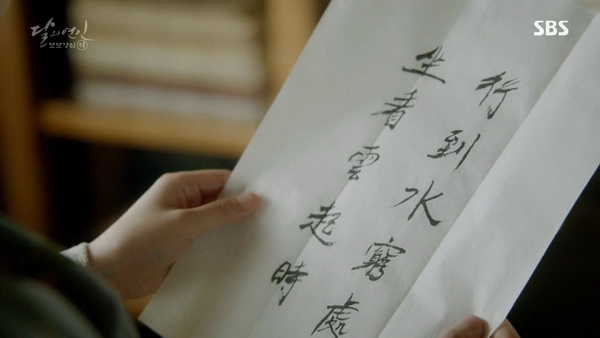 行到水窮處
坐看雲起時
달의연인
보보경심 려
SBS